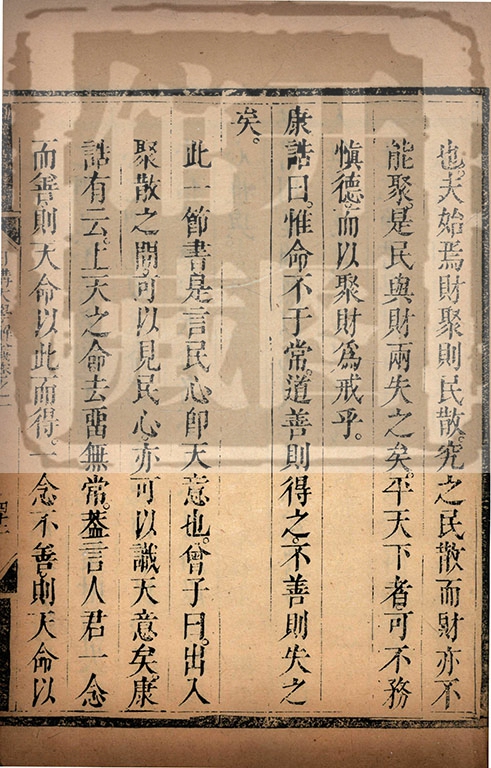 也夫始焉財聚則民散究之民散而財亦不
能聚是民與財兩失之矣平天下者可不務
愼德而以聚財爲戒乎
康誥曰惟命不于常道善則得之不善則失之
矣
此一節書是言民心卽天意也曾子曰出入
聚散之間可以見民心亦可以識天意矣康
誥有云上天之命去畱無常葢言人君一念
而善則天命以此而得一念不善則天命以